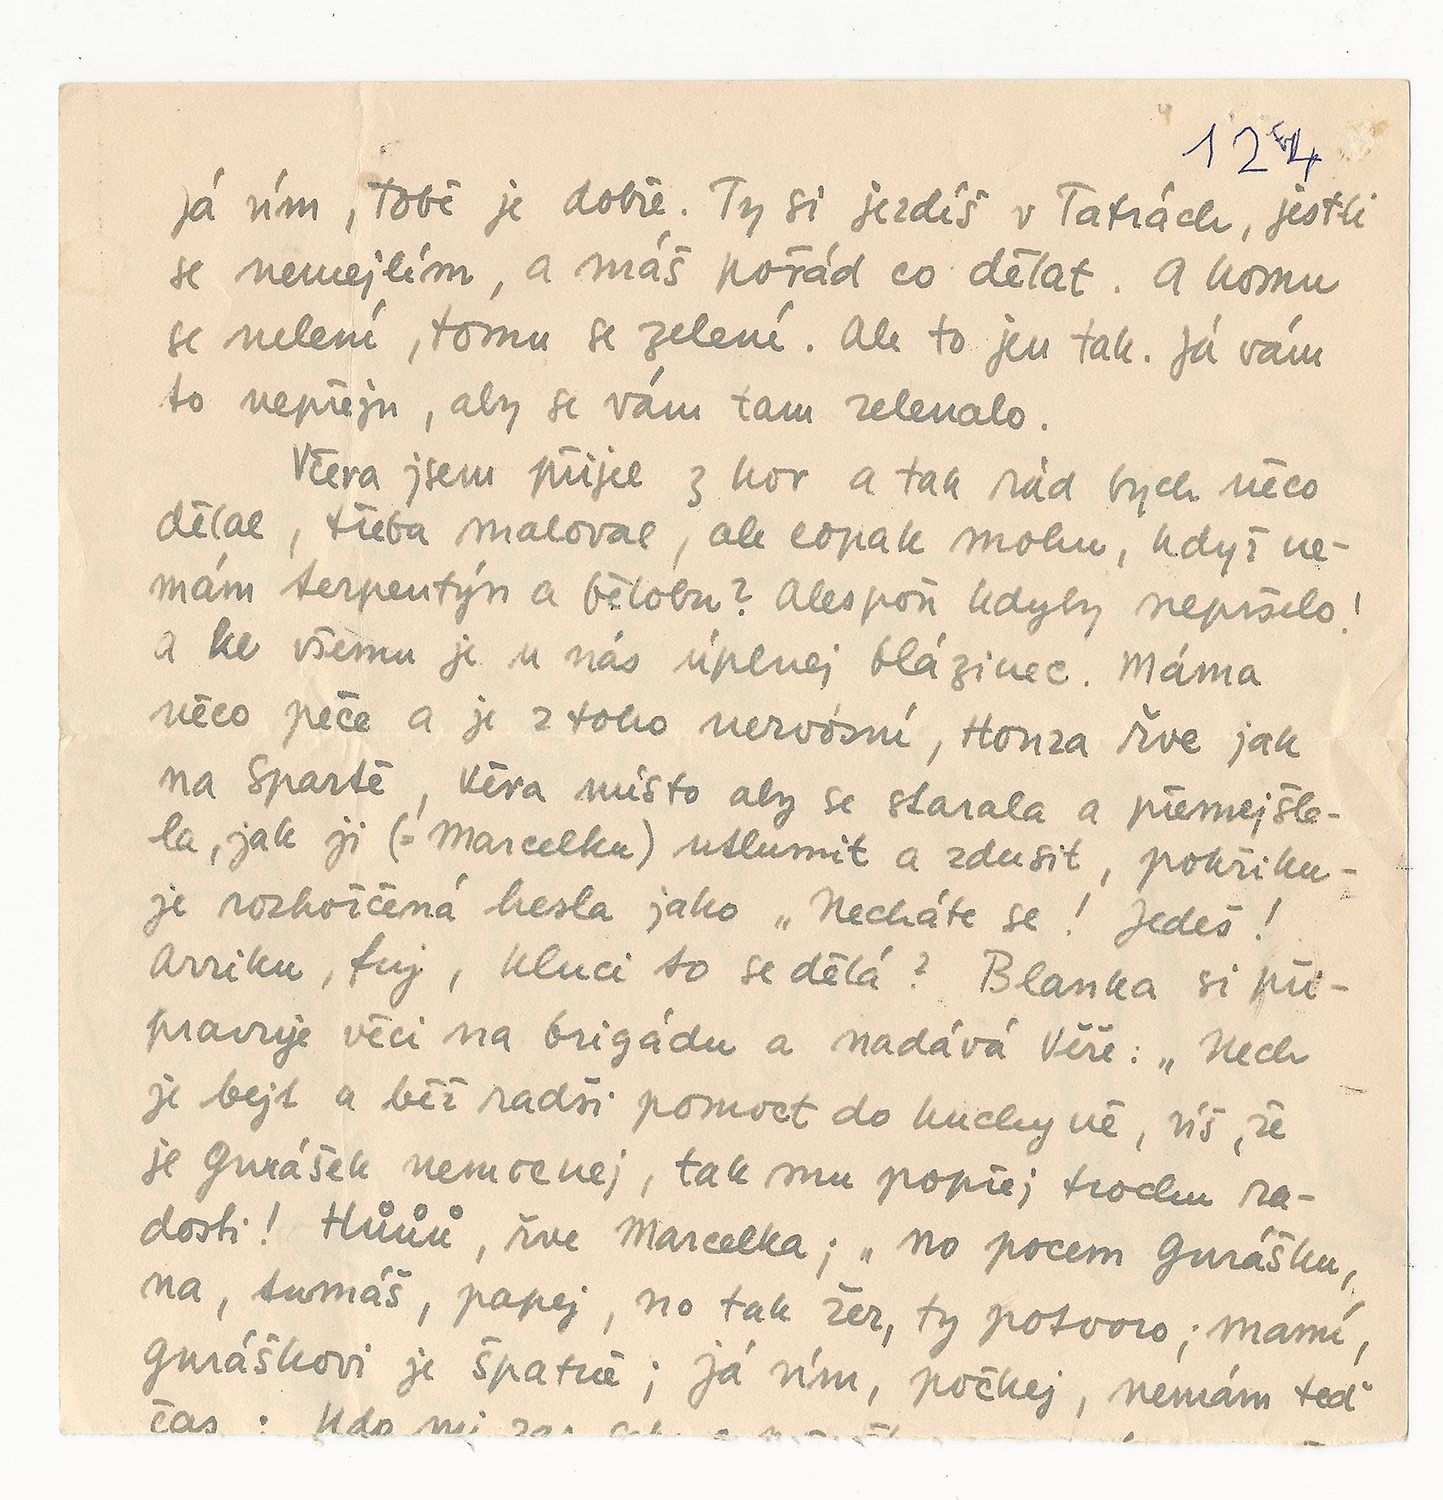 124
já vím, tobě je dobře. Ty si jezdíš v Tatrách, jestli
se nemejlím, a máš pořád co dělat. A komu
se nelení, tomu se zelení. Ale to jen tak. Já vám
to nepřeju, aby se vám tam zelenalo.
Včera jsem přijel z hor a tak rád bych něco
dělal, třeba maloval, ale copak mohu, když ne-
mám terpentýn a bělobu? Alespoň kdyby nepršelo!
a ke všemu je u nás úplnej blázinec. Máma
něco peče a je z toho nervósní, Honza řve jak
na Spartě, Věra místo aby se starala a přemejšle-
la, jak ji (= Marcelku) utlumit a zdusit, pokřiku-
je rozhořčená hesla jako „Necháte se! Jedeš!
Arriku, fuj, kluci to se dělá? Blanka si při-
pravuje věci na brigádu a nadává Věře: „Nech
je bejt a běž radši pomoct do kuchyně, víš, že
je Gurášek nemocnej, tak mu popřej trochu ra-
dosti! Hůůů, řve Marcelka; „no pocem Gurášku,
na, tumáš, papej, no tak žer, ty potvoro; mamí,
Guráškovi je špatně; já vím, počkej, nemám teď
čas: Kdo mi